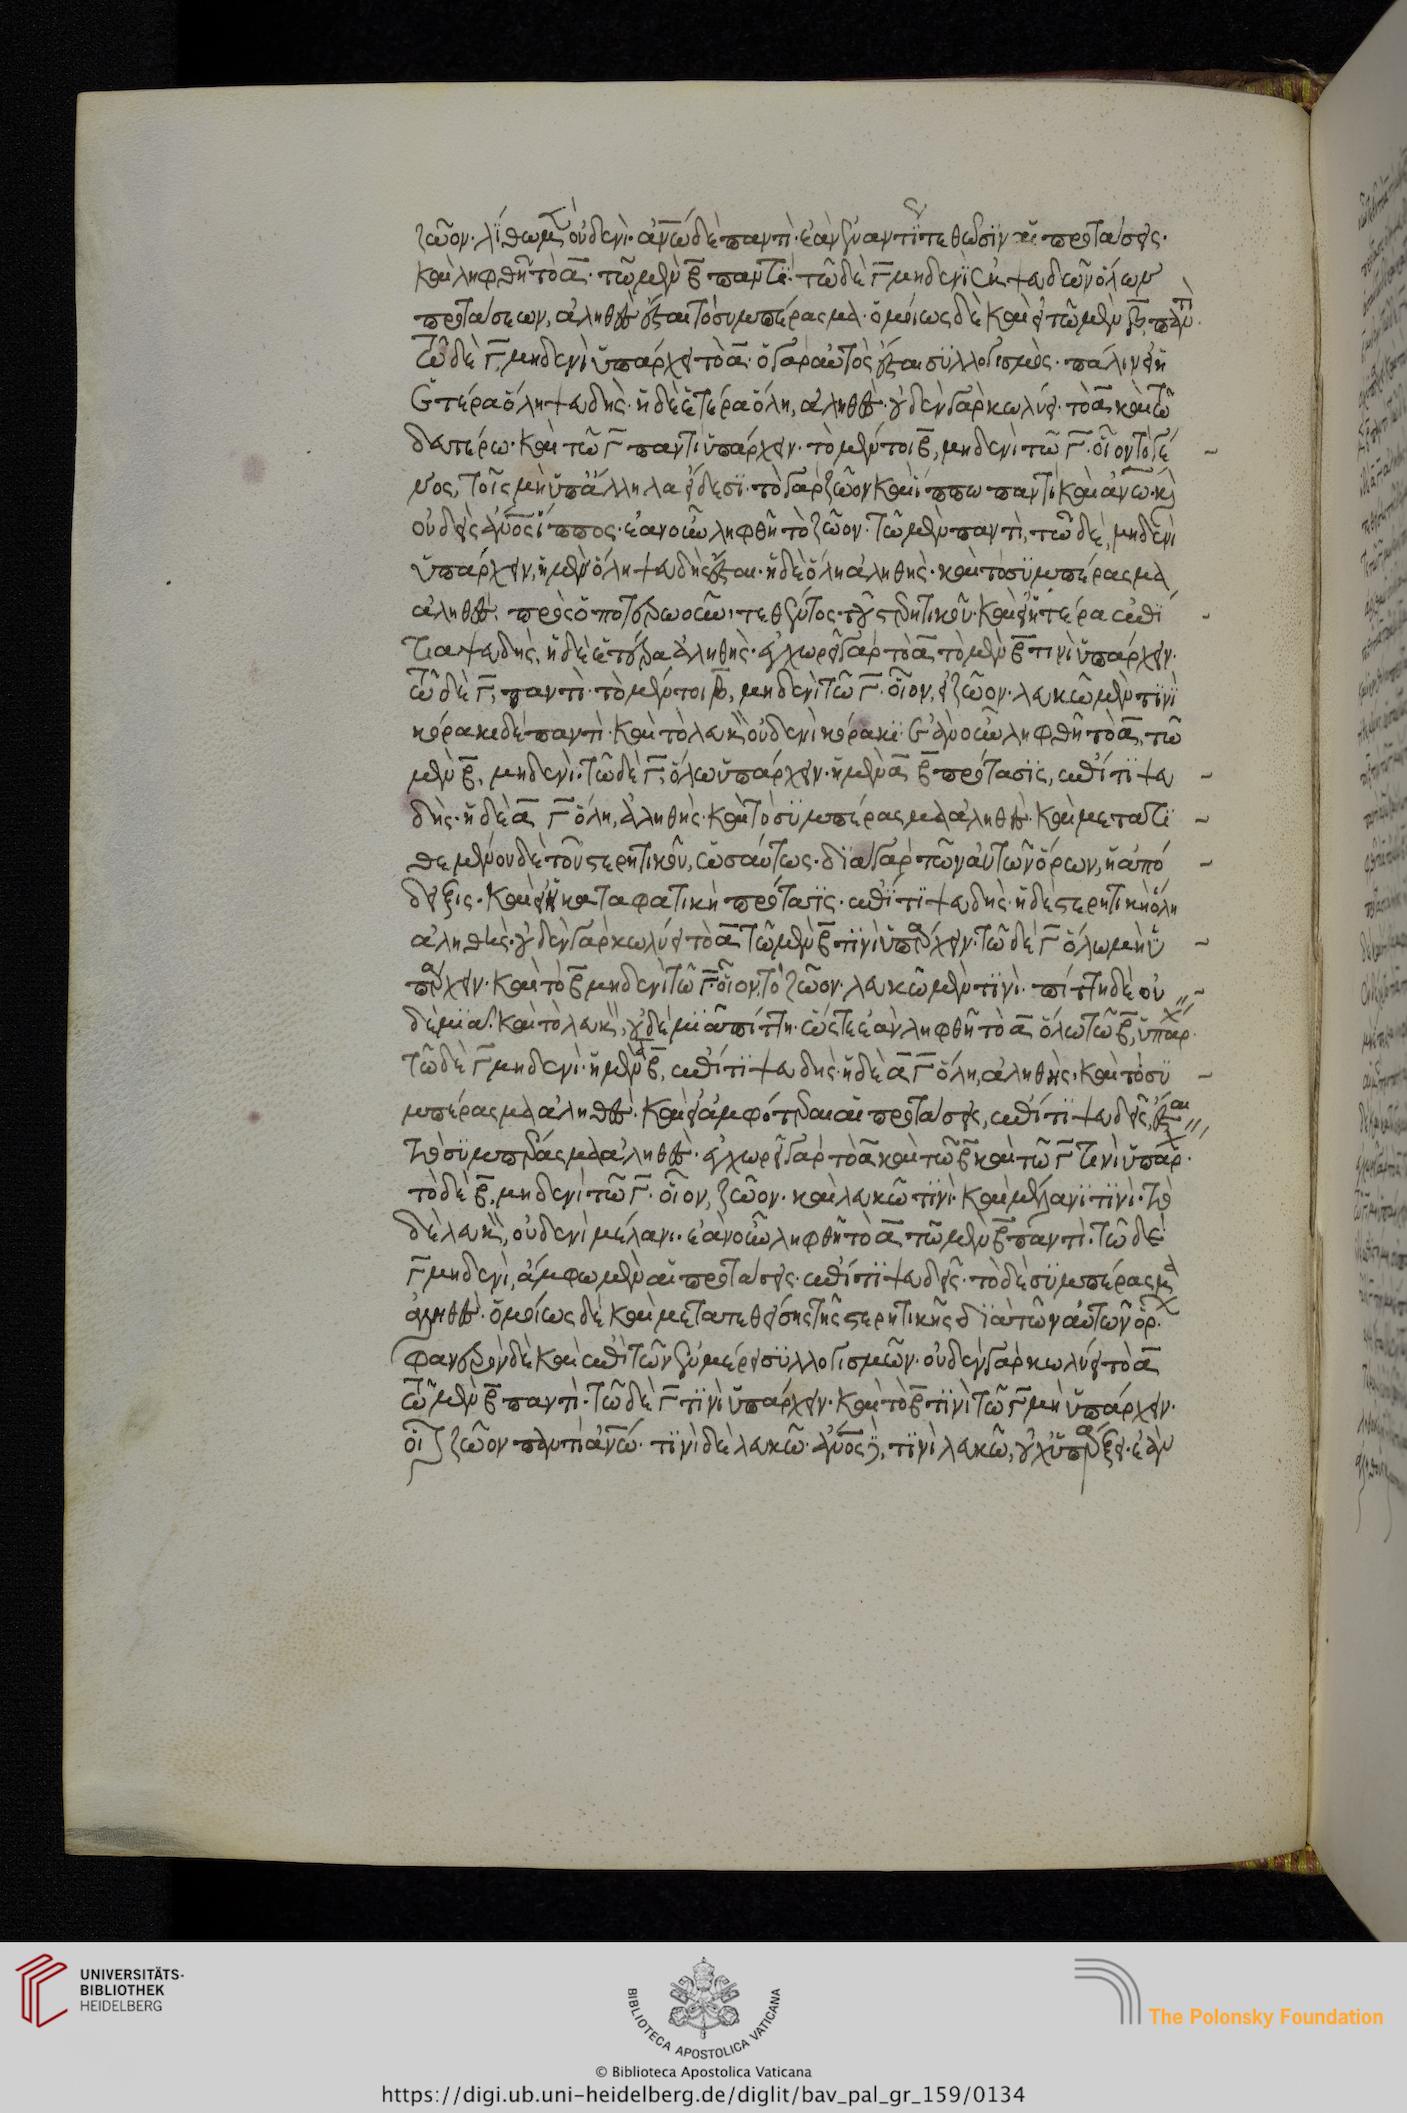 ζῶον· λίθωμ(ὲν) οὐδενὶ· ἀν(θρώπ)ω δὲ παντὶ· ἐὰν οὖν ἀντιτεθωσιν αἱ προτάσεις·
καὶ ληφθῆ τὸ α̅· τῶ μὲν β̅ παντὶ· τῶ δὲ γ̅ μηδενὶ ἐκ ψευδῶν ὅλων
προτάσεων, ἀληθὲς ἔσται τὸ συμπέρασμα· ὁμοίως δὲ καὶ εἰ τῶ μὲν β̅, παντὶ·
τῶ δὲ γ̅, μηδενὶ ὑπάρχει τὸ α̅· ὁ γὰρ αὐτὸς ἔσται συλλογισμὸς· πάλιν εἰ ἡ
ἑτέρα ὅλη ψευδὴς· ἡ δὲ ἑτέρα ὅλη, ἀληθὲς· οὐδὲν γὰρ κωλύει· τὸ α̅ καὶ τῶ
δευτέρω· καὶ τῶ γ̅ παντὶ ὑπάρχειν· τὸ μέντοι β̅, μηδενὶ τῶ γ̅· οἷον τὸ γέ
νος, τοῖς μὴ ὑπ' ἄλληλα εἴδεσι· τὸ γὰρ ζῶον καὶ ἵππω παντὶ καὶ ἀν(θρώπ)ω· καὶ
οὐδεὶς ἄν(θρωπ)ος ἵππος· ἐὰν οὖν ληφθῆ τὸ ζῶον· τῶ μὲν παντὶ, τῶ δὲ, μηδενὶ
ὑπάρχειν, ἡ μὲν ὅλη ψευδὴς ἔσται· ἡ δὲ ὅλη ἀληθὴς· καὶ τὸ συμπέρασμα
ἀληθὲς· πρὸς ὁποτερωοῦν· τεθέντος τοῦ στερητικοῦ· καὶ εἰ ἡ ἑτέρα ἐπί
τι α ψευδὴς, ἡ δὲ ἑτέρα ἀληθὴς· ἐγχωρεῖ γὰρ τὸ α̅ τὸ μὲν β̅ τινὶ ὑπάρχειν·
τῶ δὲ γ̅, παντὶ· τὸ μέντοι β̅, μηδενὶ τῶ γ̅· οἷον, εἰ ζῶον· λευκῶ μὲν τινὶ
κόρακι δὲ παντὶ· καὶ τὸ λευκ(ὸν) οὐδενὶ κόρακι· ἐὰν οὖν ληφθῆ τὸ α̅, τῶ
μὲν β̅, μηδενὶ· τῶ δὲ γ̅, ὅλω ὑπάρχειν· ἡ μὲν α̅ β̅ πρότασις, ἐπί τι ψευ
δὴς· ἡ δὲ α̅ γ̅ ὅλη, ἀληθὴς· καὶ τὸ συμπέρασμα ἀληθὲς· καὶ μετατι
θεμένου δὲ τοῦ στερητικοῦ, ὡσαύτως· διὰ γὰρ τῶν αὐτῶν ὅρων, ἡ ἀπό
δειξις· καὶ εἰ ἡ καταφατικὴ πρότασις· ἐπί τι ψευδὴς· ἡ δὲ στερητικὴ ὅλη
ἀληθὴς· οὐδὲν γὰρ κωλύει τὸ α̅ τῶ μὲν β̅ τινὶ ὑπάρχειν· τῶ δὲ γ̅ ὅλω μὴ ὑ
πάρχειν· καὶ τὸ β̅ μηδενὶ τῶ γ̅· οἷον, τὸ ζῶον· λευκῶ μὲν τινὶ· πίττη δὲ οὐ
δεμιᾶ· καὶ τὸ λευκ(ὸν), οὐδεμιᾶ πίττη· ὥστε ἐὰν ληφθῆ τὸ α̅ ὅλω τῶ β̅, ὑπάρχ
τῶ δὲ γ̅ μηδενὶ· ἡ μὲν α̅ β̅, ἐπί τι ψευδὴς· ἡ δὲ α̅ γ̅ ὅλη, ἀληθὴς· καὶ τὸ συ
μπέρασμα ἀληθὲς· καὶ εἰ ἀμφότεραι αἱ προτάσεις, ἐπί τι ψευδεῖς, ἔσται
τὸ συμπέρασμα ἀληθὲς· ἐγχωρεῖ γὰρ τὸ α̅ καὶ τῶ β̅ καὶ τῶ γ̅ τινὶ ὑπάρχ·
τὸ δὲ β̅, μηδενὶ τῶ γ̅· οἷον, ζῶον· καὶ λευκῶ τινὶ· καὶ μέλανι τινὶ· τὸ
δὲ λευκ(ὸν), οὐδενὶ μέλανι· ἐὰν οὖν ληφθῆ τὸ α̅ τῶ μὲν β̅ παντὶ· τῶ δὲ
γ̅ μηδενὶ, ἄμφω μὲν αἱ προτάσεις· ἐπί τι ψευδεῖς· τὸ δὲ συμπέρασμα
ἀληθὲς· ὁμοίως δὲ καὶ μετατεθείσης τῆς στερητικῆς διὰ τῶν αὐτῶν ὅρ·
φανερὸν δὲ καὶ ἐπὶ τῶν ἐν μέρει συλλογισμῶν· οὐδὲν γὰρ κωλύει τὸ α̅
τῶ μὲν β̅ παντὶ· τῶ δὲ γ̅ τινὶ ὑπάρχειν· καὶ τὸ β̅ τινὶ τῶ γ̅ μὴ ὑπάρχειν·
οἷ(ον) ζῶον παντὶ ἀν(θρώπ)ω· τινὶ δὲ λευκῶ· ἄν(θρωπ)ος δὲ, τινὶ λευκῶ, οὐχ ὑπάρξει· ἐὰν
UNIVERSITÄTS-
BIBLIOTHEK
HEIDELBERG
BIBLIOTECA APOSTOLICA VATICANA
The Polonsky Foundation
© Biblioteca Apostolica Vaticana
https://digi.ub.uni-heidelberg.de/diglit/bav_pal_gr_159/0134